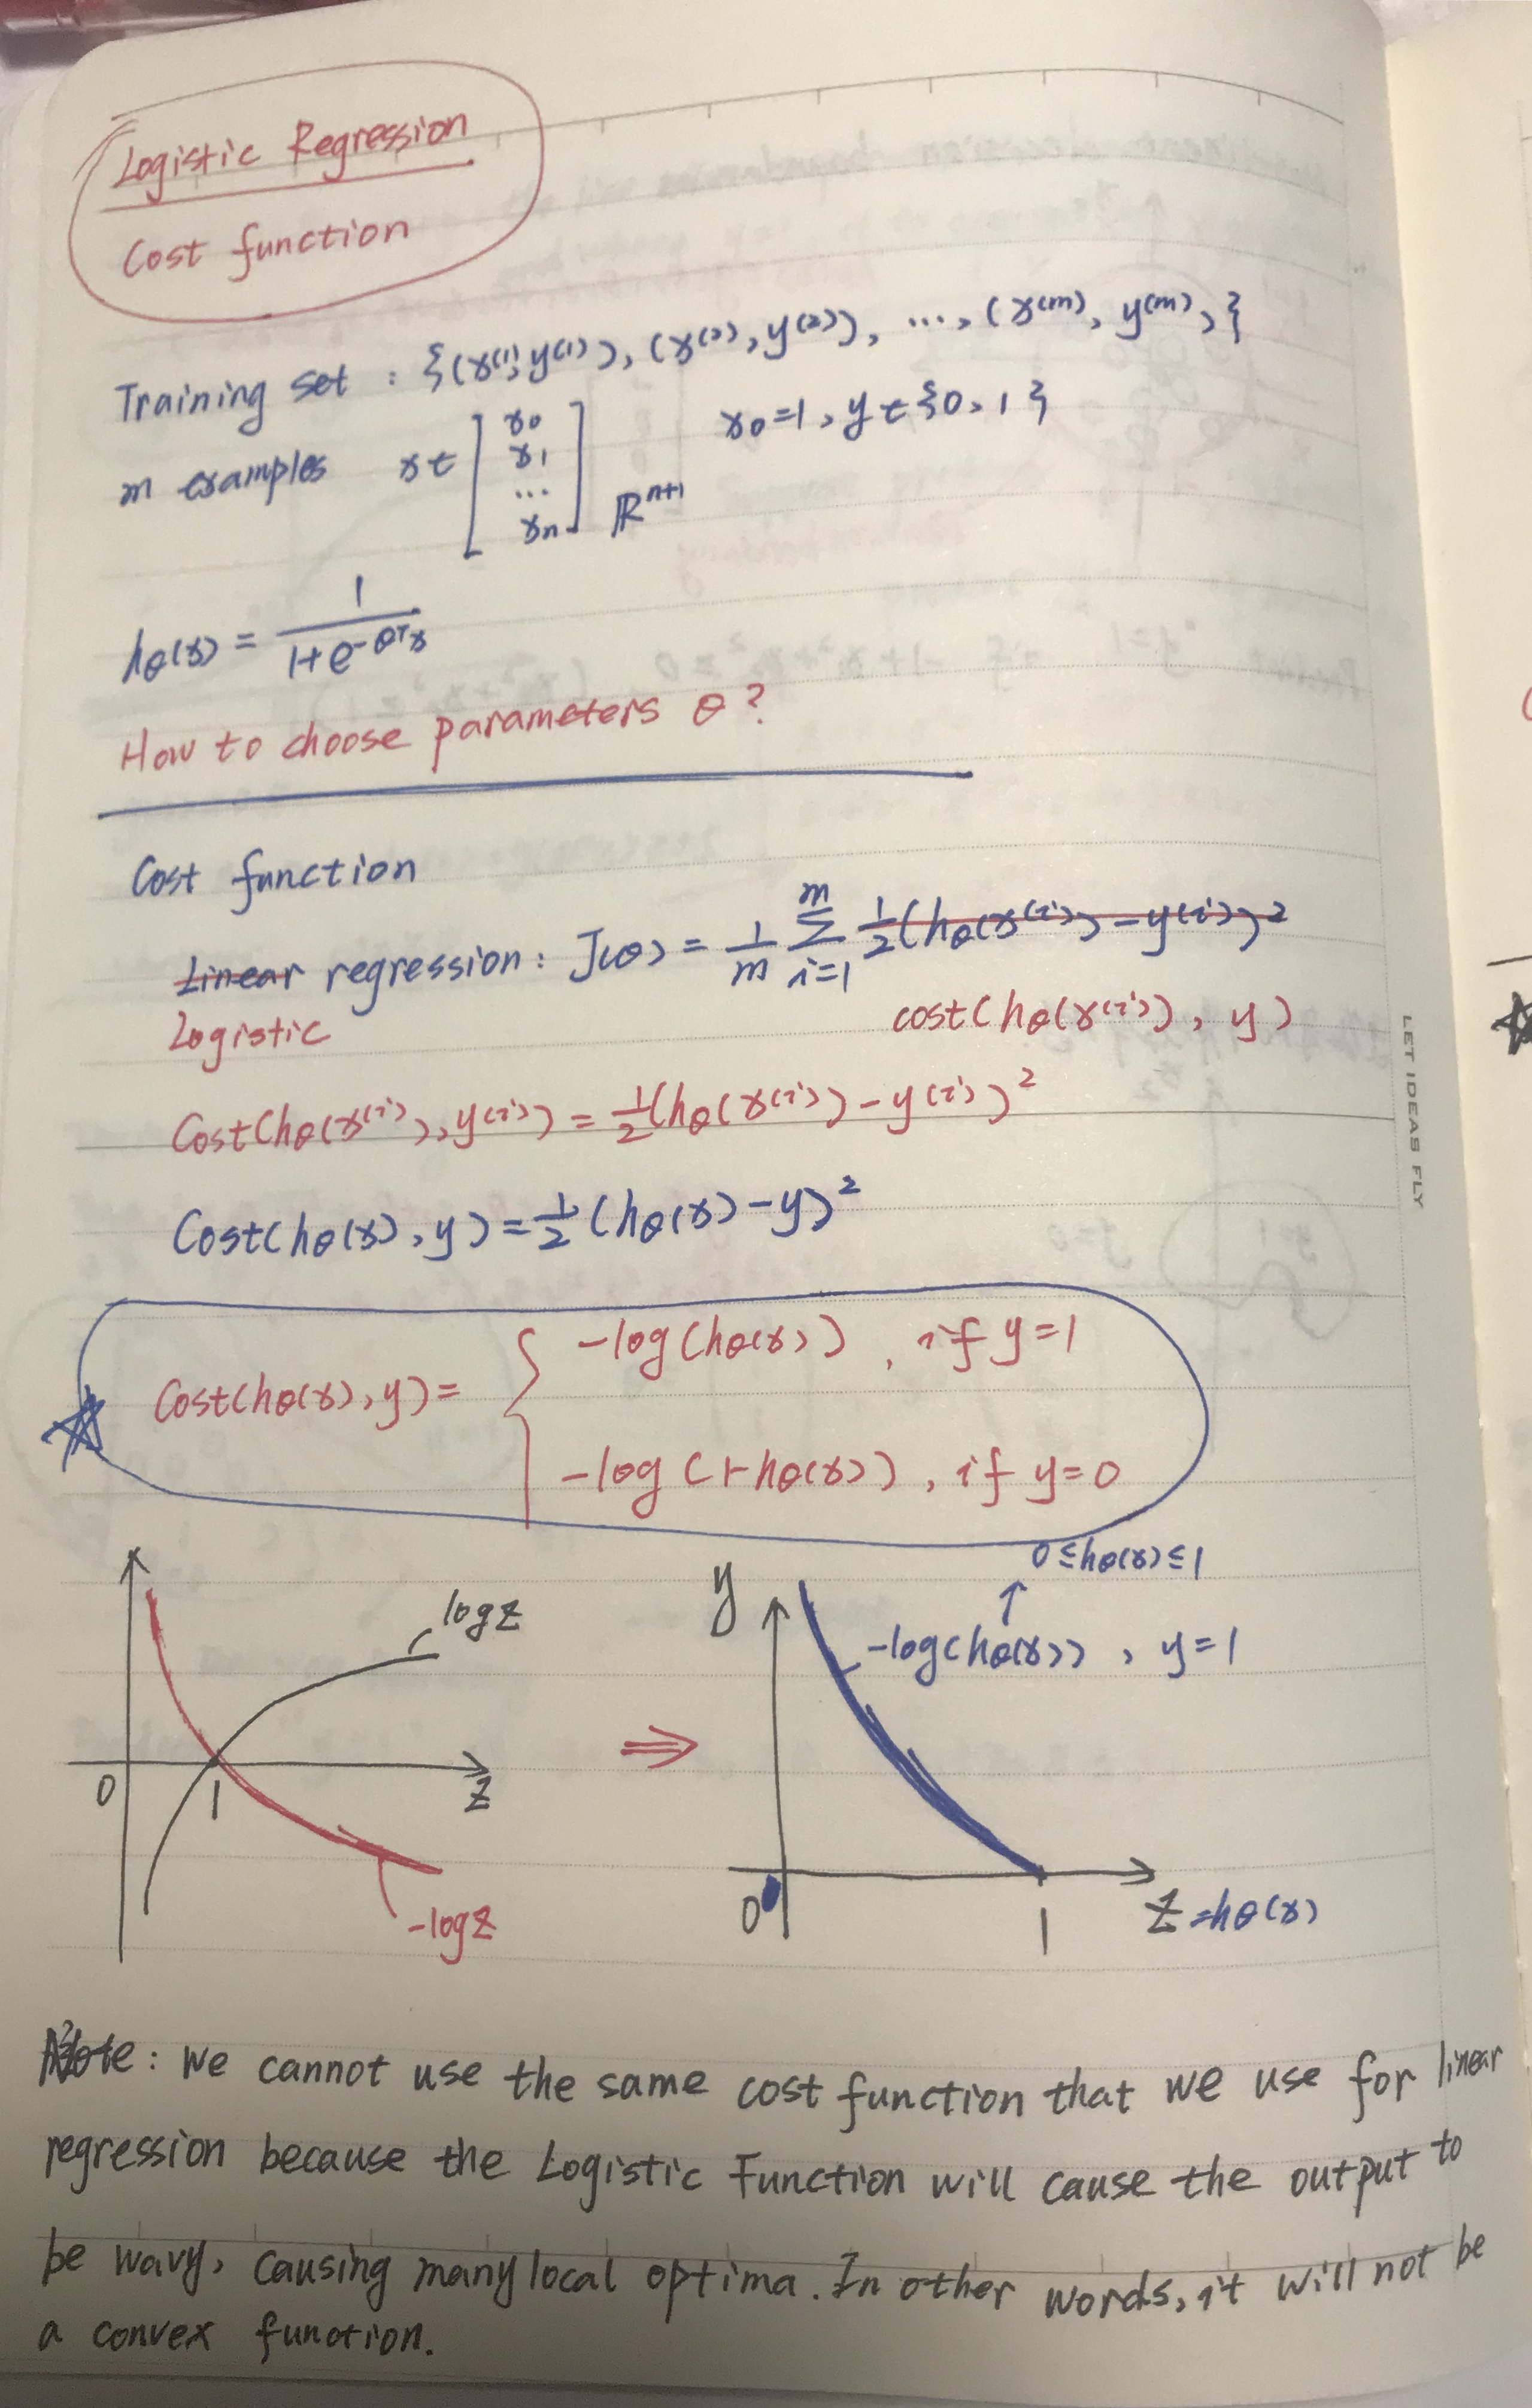 Logistic Regression
Cost function
Training set : {(x⁽¹⁾,y⁽¹⁾), (x⁽²⁾,y⁽²⁾), ..., (x⁽ᵐ⁾, y⁽ᵐ⁾)}
m examples x ∈ [x₀ x₁ ... xₙ] ℝⁿ⁺¹ x₀=1, y ∈ {0, 1}
hθ(x) = 1 / (1+e^(-θᵀx))
How to choose parameters θ?
Cost function
Linear regression: J(θ) = 1/m Σ_{i=1}^{m} 1/2(hθ(x⁽ⁱ⁾) - y⁽ⁱ⁾)²
Logistic cost(hθ(x⁽ⁱ⁾), y)
Cost(hθ(x⁽ⁱ⁾), y⁽ⁱ⁾) = 1/2(hθ(x⁽ⁱ⁾) - y⁽ⁱ⁾)²
Cost(hθ(x), y) = 1/2 (hθ(x) - y)²
Cost(hθ(x), y) = { -log(hθ(x)) , if y=1
-log(1-hθ(x)) , if y=0
0 ≤ hθ(x) ≤ 1
y
log z
-log(hθ(x)) , y=1
0 1 z
-log z
0 1 z = hθ(x)
Note: We cannot use the same cost function that we use for linear
regression because the Logistic Function will cause the output to
be wavy, causing many local optima. In other words, it will not be
a convex function.
LET IDEAS FLY